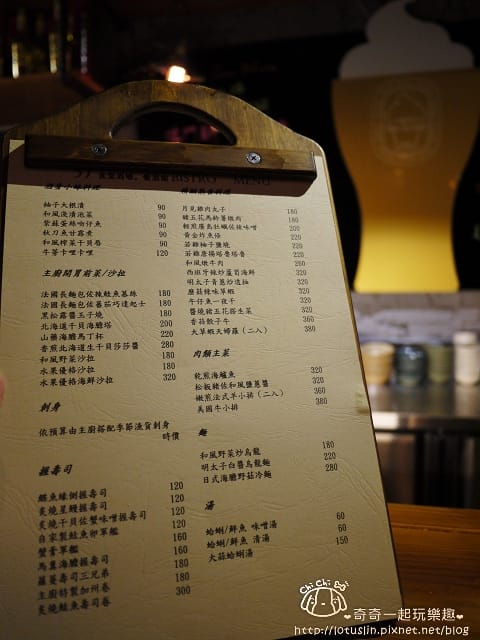 BISTRO MENU
酒肴小缽料理
柚子大根漬 90
和風淺漬泡菜 90
紫蘇蛋絲吻仔魚 90
秋刀魚甘露煮 90
和風榨菜干貝唇 90
牛蒡卡哩卡哩 120
主廚開胃前菜/沙拉
法國長麵包佐辣鮭魚慕絲 180
法國長麵包佐蕃茄巧達起士 180
黑松露醬玉子燒 180
北海道干貝海膽塔 200
山藥海膽馬丁杯 220
香煎北海道生干貝莎莎醬 280
和風野菜沙拉 180
水果優格沙拉 180
水果優格海鮮沙拉 320
刺身
依預算由主廚搭配季節漁貨刺身
時價
握壽司
鰈魚緣側握壽司 120
炙燒星鰻握壽司 120
炙燒干貝佐蟹味噌握壽司 120
自家製鮭魚卵軍艦 160
蟹膏軍艦 160
馬糞海膽握壽司 180
蘿蔓壽司三兄弟 180
主廚特製加州卷 300
炙燒鮭魚壽司卷
月見雞肉丸子 180
豬五花馬鈴薯燉肉 180
輕煎廣島牡蠣佐味噌 200
黃金炸魚條 220
莊雞柚子鹽燒
莊雞唐揚塔魯塔魯
和風燉牛肉 260
西班牙辣炒蘆筍海鮮 320
明太子青蔥炒透抽 320
蘑菇辣味草蝦 320
午仔魚一夜干 320
醬燒豬五花搭生菜 320
香蒜骰子牛 360
大草蝦天婦羅(二入) 380
肉類主菜
乾煎海鱸魚 320
松板豬佐和風鹽蔥醬 320
嫩煎法式羊小排(二入) 360
美國牛小排 380
麵
和風野菜炒烏龍 180
明太子白醬烏龍麵 220
日式海膽野菇冷麵 280
湯
蛤蜊/鮮魚 味噌湯 60
蛤蜊/鮮魚 清湯 60
大蒜蛤蜊湯 150
Chi Chi Bo!
奇奇一起玩樂趣
http://lotuslin.pixnet.net/blog